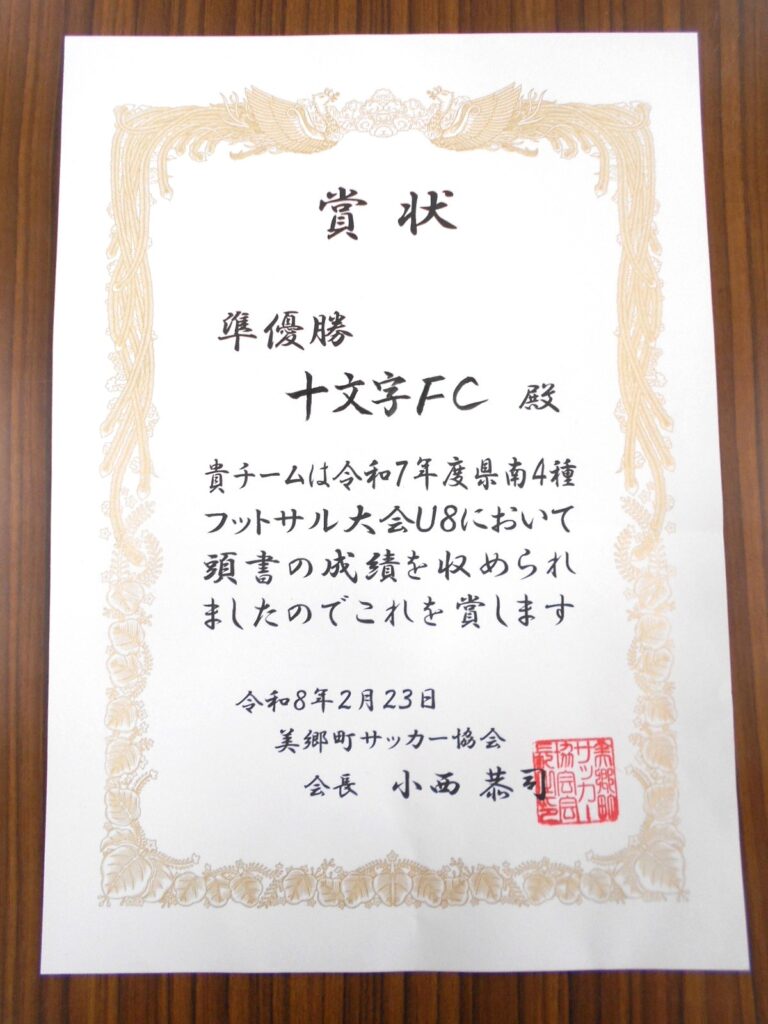 賞状
準優勝
十文字FC 殿
貴チームは令和7年度県南4種
フットサル大会U8において
頭書の成績を収められ
ましたのでこれを賞します
令和8年2月23日
美郷町サッカー協会
会長 小西 恭司
美郷町
サッカー
協会会
長之印